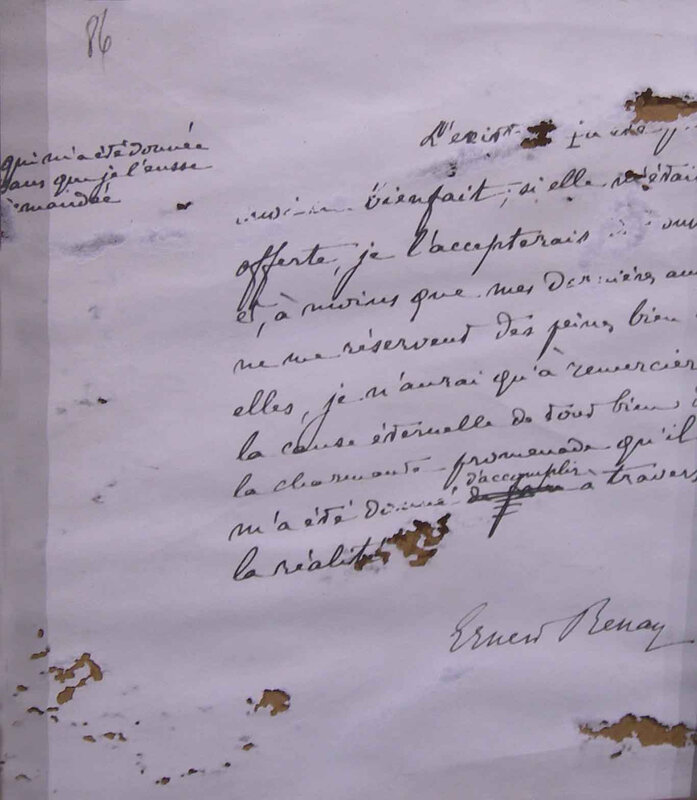 86
qui m'a été donnée
sans que je l'eusse
demandée
L'exist
bienfait; si elle m'était
offerte, je l'accepterais
et, à moins que mes dernières
ne me réservent des peines bien
elles, je n'aurai qu'à remercier
la cause éternelle de tout bien
la charmante promenade qu'il
d'accomplir
m'a été donné à travers
la réalité
Ernest Renan